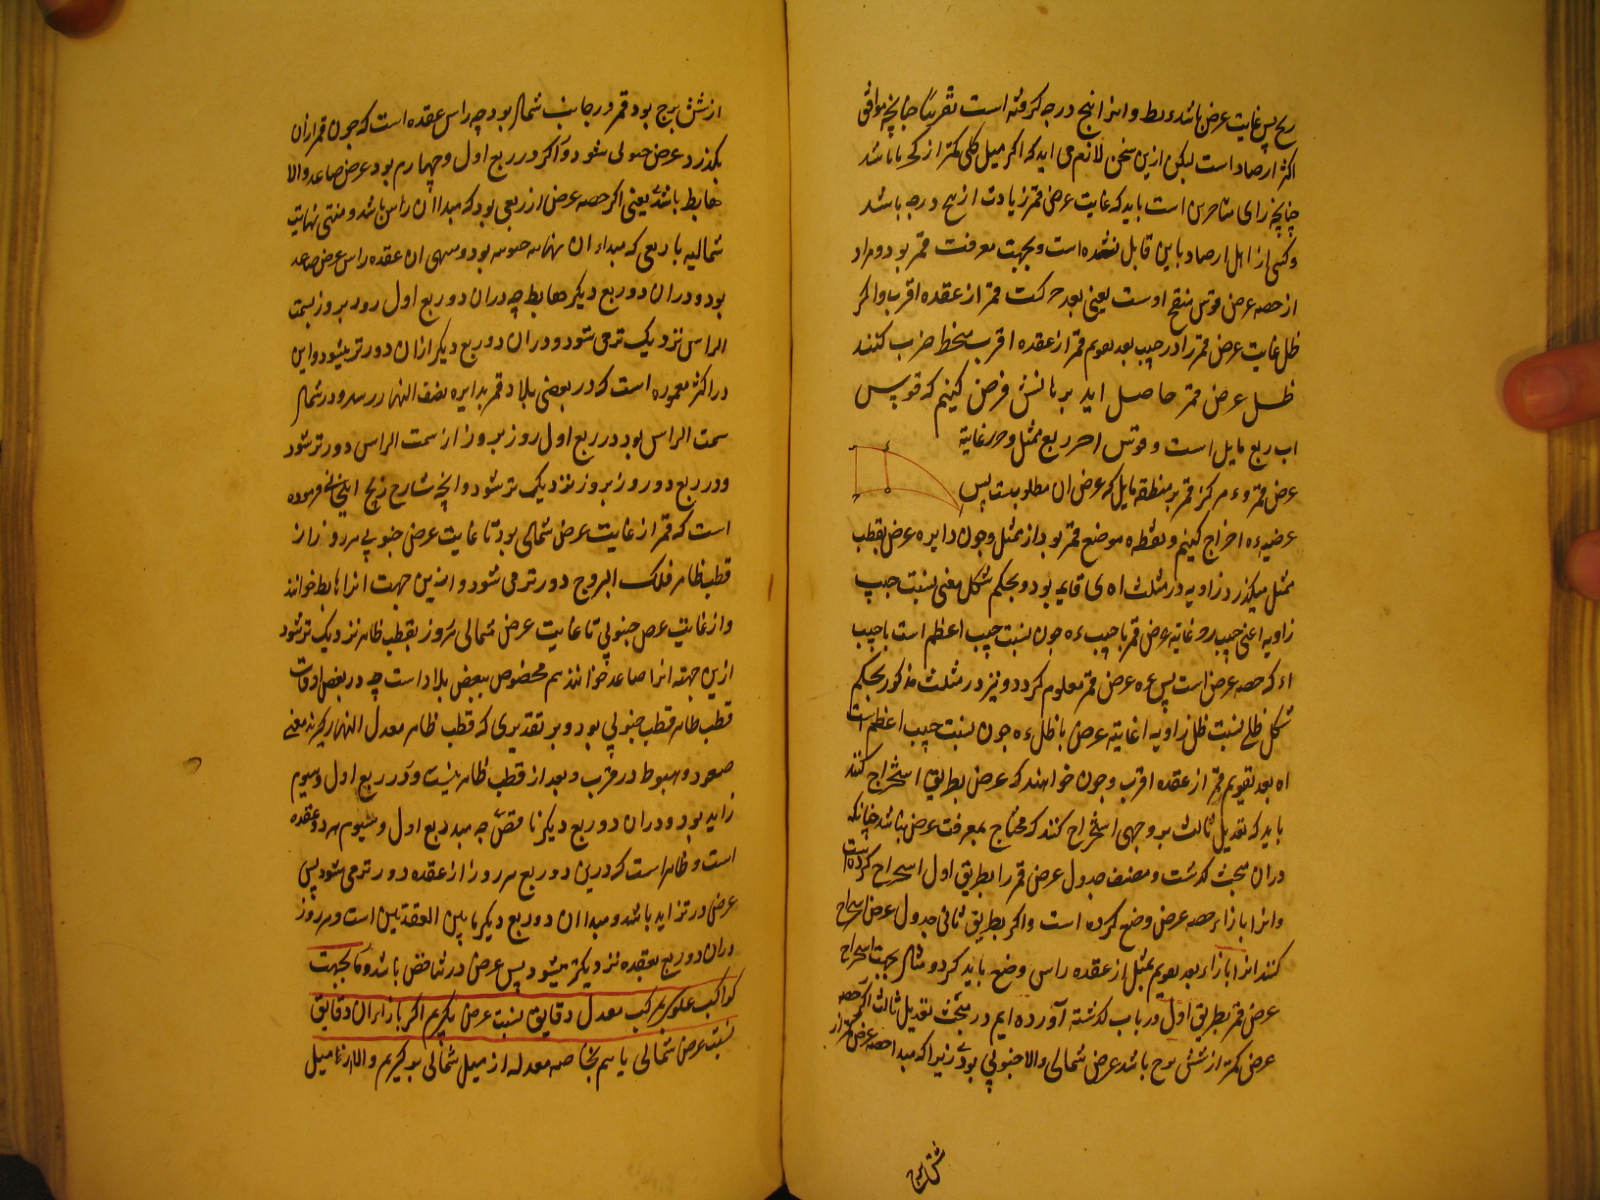 پس غایت عرض باشد و انرا پنج درجه گرفته است تقریبا چنانچه موافق
اکثر ارصاد است لیکن ازین سخن لازم می اید که اکر میل کلی کمتر از باشد
چنانچه رای متاخرین است باید که غایت عرض قمر زیادت از پنج درجه باشد
و کسی از اهل ارصاد باین قابل نشده است و بجهت معرفت قمر بود و مراد
از حصه عرض قوس منقح اوست یعنی بعد حرکت قمر از عقده اقرب و اکر
ظل غایت عرض قمر را در جیب بعد تقویم قمر از عقده اقرب منحط ضرب کنند
ظل عرض قمر حاصل اید برهانش فرض کنیم که قوس
اب ربع مایل است و قوس احر ربع ممثل و حر غایة
عرض قمر و ء مرکز قمر بر منطقه مایل که عرض ان مطلوبست پس
عرضیه ءه اخراج کنیم و نقطه ه موضع قمر بود از ممثل و چون دایره عرض بقطب
ممثل میکذرد زاویه ه در مثلث اه ء قایمه بود و بحکم شکل مغنی نسبت جیب
زاویه اعنی جیب غایة عرض قمر با جیب ءه چون نسبت جیب اعظم است با جیب
اء که حصه عرض است پس ءه عرض قمر معلوم کردد و نیز در مثلث مذکور بحکم
شکل ظلی نسبت ظل زاویه ا غایة عرض با ظل ءه چون نسبت جیب اعظم است
اه بعد تقویم قمر از عقده اقرب و چون خواهند که عرض بطریق استخراج کنند
باید که تعدیل ثالث بر وجهی استخراج کنند که محتاج بمعرفت عرض نباشد چنانکه
دران مبحث کذشت و مصنف جدول عرض قمر را بطریق اول استخراج کرده است
و انرا بازاء حصه عرض وضع کرده است و اکر بطریق ثانی جدول عرض استخراج
کنند انرا بازاء بعد تقویم ممثل از عقده راس وضع باید کرد و مثال بجهت استخراج
عرض قمر بطریق اول در باب کذشته آورده ایم در مبحث تعدیل ثالث اکر حصه
عرض کمتر از شش برج باشد عرض شمالی والا جنوبی بود زیرا که مبدا حصه عرض کمتر از
از شش برج بود قمر در جانب شمال بود چه راس عقده است که چون قمر ازان
بکذرد عرض شمالی شود و اکر در ربع اول و چهارم بود عرض صاعد والا
هابط باشد یعنی اکر حصه عرض از ربعی بود که مبداء ان راس باشد و منتهی نهایت
شمالیه یا ربعی که مبداء ان نهایة جنوبیه بود و منتهی ان عقده راس عرض صاعد
بود و دران دو ربع دیکر هابط چه دران دو ربع اول روز بروز بسمت
الراس نزدیک تر می شود و دران دو ربع دیکر ازان دورتر میشود و این
در اکثر معموره است که در بعضی بلاد قمر بدایره نصف النهار رسد و در شمال
سمت الراس بود در ربع اول روز بروز از سمت الراس دورتر شود
و در ربع دو روز بروز نزدیک تر شود و انچه شارح زیج ایلخانی فرموده
است که قمر از غایت عرض شمالی بود تا غایت عرض جنوبی هر روز از
قطب ظاهر فلک البروج دورتر می شود و ازین جهت انرا هابط خوانند
و از غایت عرض جنوبی تا غایت عرض شمالی هر روز بقطب ظاهر نزدیک تر شود
ازین جهته انرا صاعد خوانند هم مخصوص ببعض بلاد است چه در بعض اوقات
قطب ظاهر قطب جنوبی بود و بر تقدیری که قطب ظاهر معدل النهار کیرند معنی
صعود و هبوط در قرب و بعد از قطب ظاهر نیست و در ربع اول و سیوم
زاید بود و دران دو ربع دیکر ناقص چه مبدء ربع اول و سیوم هر دو عقده
است و ظاهر است که درین دو ربع هر روز از عقده دورتر می شود پس
عرض در تزاید باشد و مبدا ان دو ربع دیکر مابین العقدتین است و هر روز
دران دو ربع بعقده نزدیکتر میشود پس عرض در تناقص باشد و اما بجهت
کواکب علوی بمرکب معدل دقایق نسبت عرض بکیریم اکر بازاء ان دقایق
نسبت عرض شمالی یابیم بخاصه معدله از میل شمالی بر کیریم والا از میل